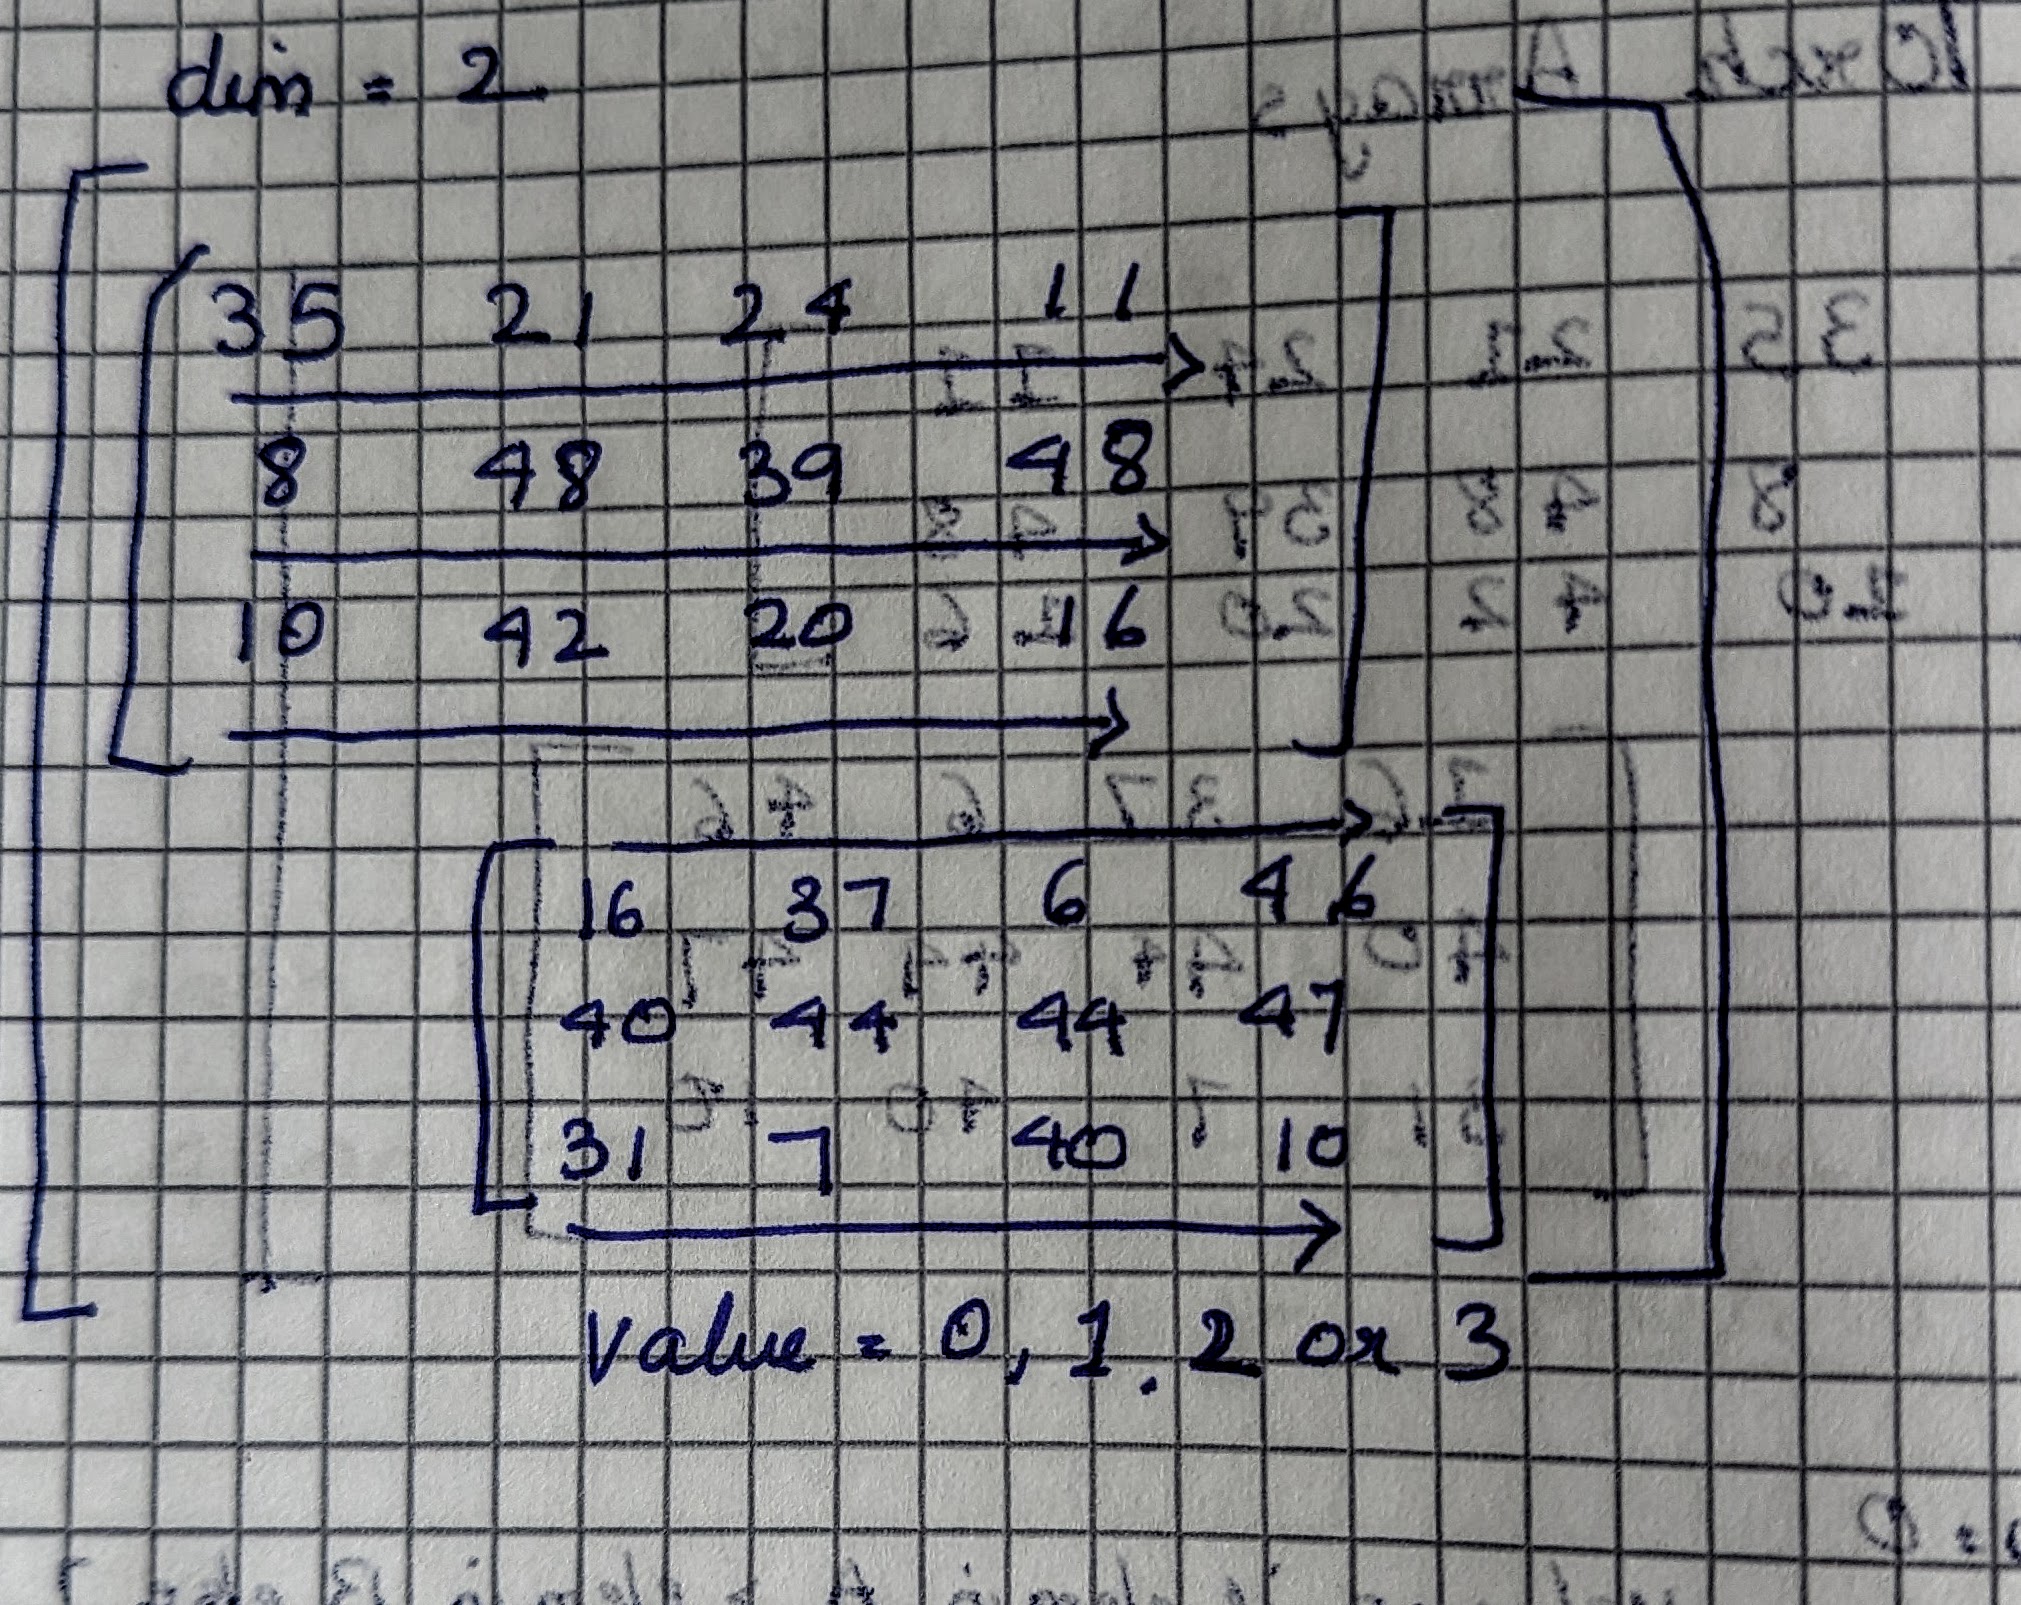 dim = 2
35 21 24 11
8 48 39 48
10 42 20 16
16 37 6 46
40 44 44 47
31 7 40 10
value = 0, 1, 2 or 3